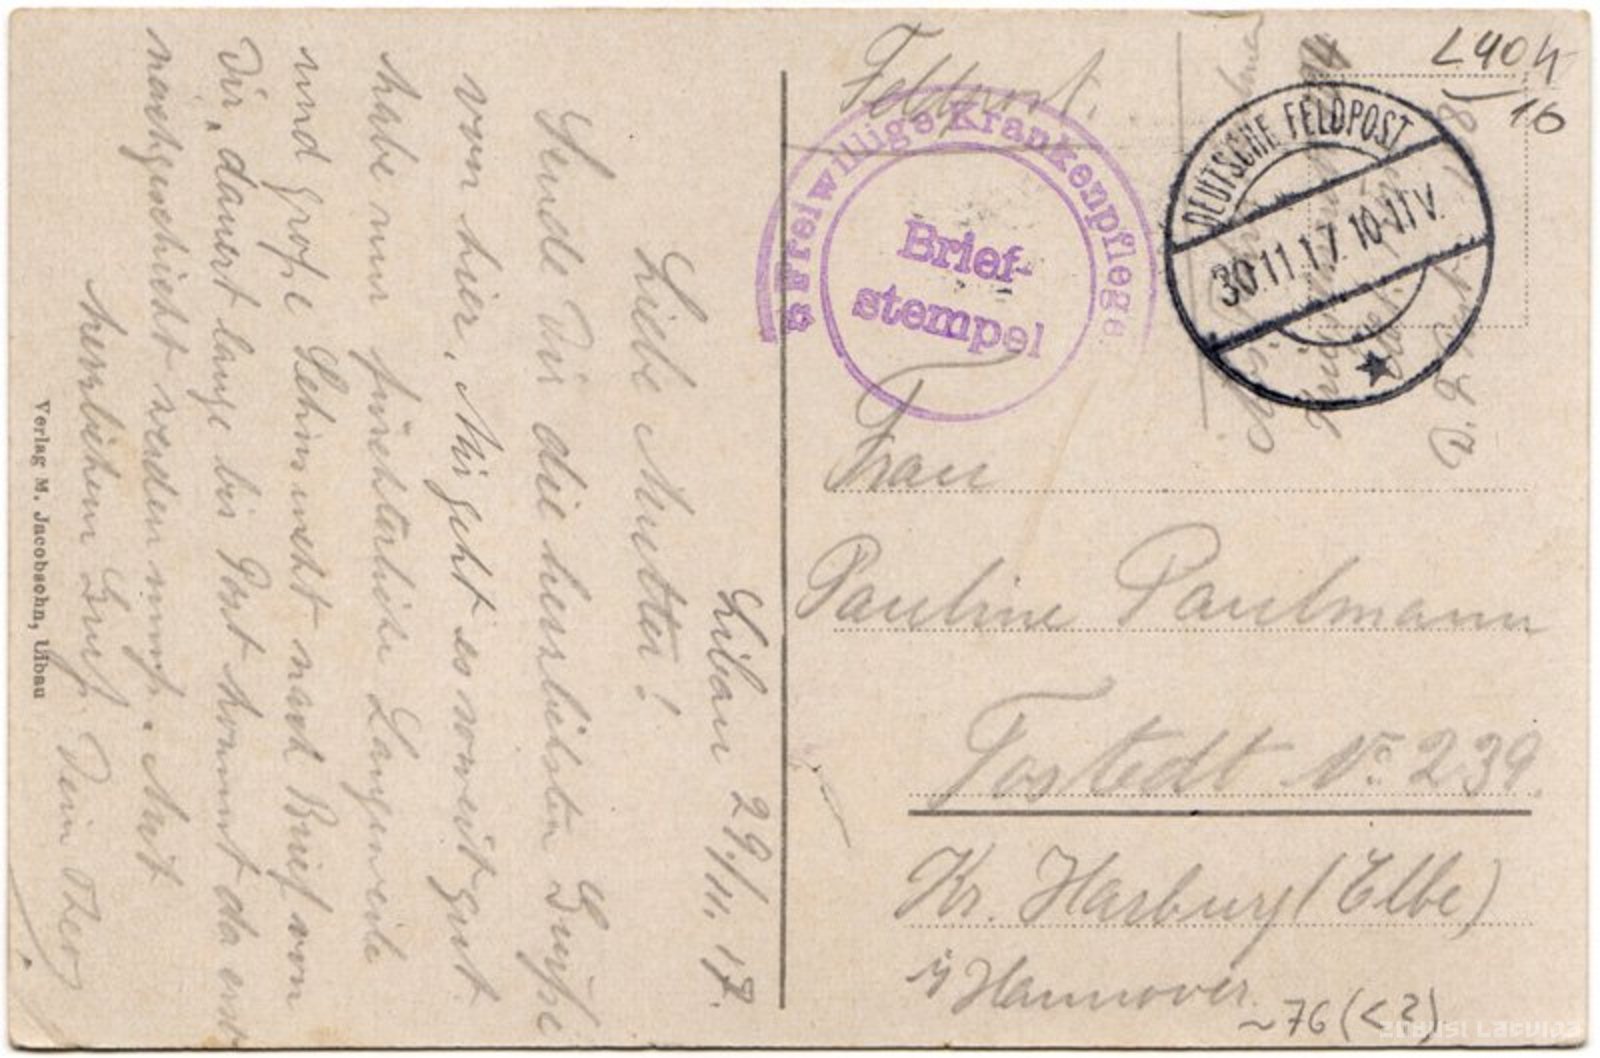 Libau 29/11. 17.
Liebe Mutter!
Sende Dir die herzlichsten Grüße
von hier, Mir geht es soweit gut
habe nur fürchterliche Langeweile
und große Sehnsucht nach Brief von
Dir, dauert lange bis Post kommt da erst
nachgeschickt werden muß. Mit
herzlichem Gruß Dein
Verlag M. Jacobsohn, Libau
Feldpost.
Freiwillige Krankenpflege
Brief-
stempel
DEUTSCHE FELDPOST
30.11.17. 10-11 V.
Frau
Pauline Paulmann
Tostedt No 239.
Kr. Harburg (Elbe)
Hannover.
~76 (<2)
ZUDUSI LATVIJA